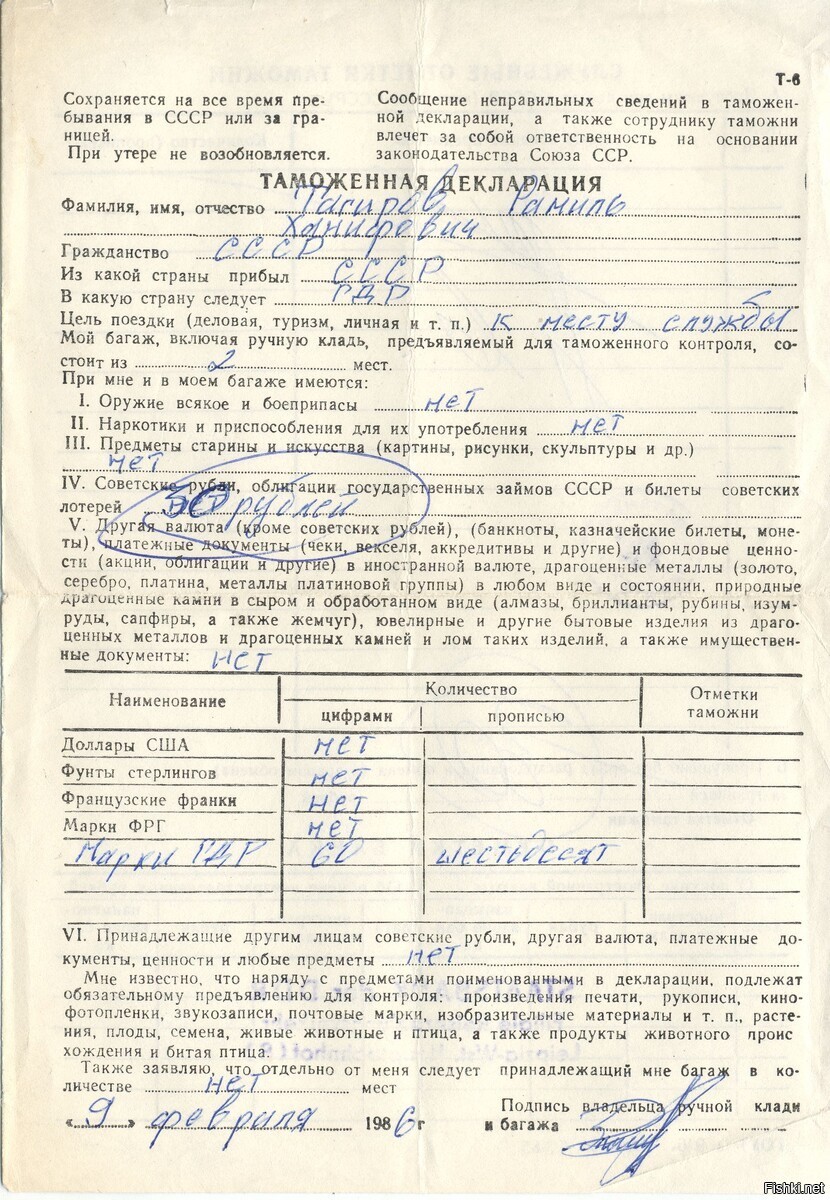 Т-6
Сохраняется на все время пре-
бывания в СССР или за гра-
ницей.
При утере не возобновляется.
Сообщение неправильных сведений в таможен-
ной декларации, а также сотруднику таможни
влечет за собой ответственность на основании
законодательства Союза ССР.
ТАМОЖЕННАЯ ДЕКЛАРАЦИЯ
Фамилия, имя, отчество Тагиров Рамиль
Ханифович
Гражданство СССР
Из какой страны прибыл СССР
В какую страну следует ГДР
Цель поездки (деловая, туризм, личная и т. п.) к месту службы
Мой багаж, включая ручную кладь, предъявляемый для таможенного контроля, со-
стоит из 2 мест.
При мне и в моем багаже имеются:
I. Оружие всякое и боеприпасы нет
II. Наркотики и приспособления для их употребления нет
III. Предметы старины и искусства (картины, рисунки, скульптуры и др.)
нет
IV. Советские рубли, облигации государственных займов СССР и билеты советских
лотерей 30 рублей
V. Другая валюта (кроме советских рублей), (банкноты, казначейские билеты, моне-
ты), платежные документы (чеки, векселя, аккредитивы и другие) и фондовые ценно-
сти (акции, облигации и другие) в иностранной валюте, драгоценные металлы (золото,
серебро, платина, металлы платиновой группы) в любом виде и состоянии, природные
драгоценные камни в сыром и обработанном виде (алмазы, бриллианты, рубины, изум-
руды, сапфиры, а также жемчуг), ювелирные и другие бытовые изделия из драго-
ценных металлов и драгоценных камней и лом таких изделий, а также имуществен-
ные документы: нет
Наименование Количество Отметки таможни
цифрами прописью
Доллары США нет
Фунты стерлингов нет
Французские франки нет
Марки ФРГ нет
Марки ГДР 60 шестьдесят
VI. Принадлежащие другим лицам советские рубли, другая валюта, платежные до-
кументы, ценности и любые предметы нет
Мне известно, что наряду с предметами поименованными в декларации, подлежат
обязательному предъявлению для контроля: произведения печати, рукописи, кино-
фотопленки, звукозаписи, почтовые марки, изобразительные материалы и т. п., расте-
ния, плоды, семена, живые животные и птица, а также продукты животного проис
хождения и битая птица.
Также заявляю, что отдельно от меня следует принадлежащий мне багаж в ко-
личестве нет мест
«9» февраля 1986 г
Подпись владельца ручной клади
и багажа
Fishki.net